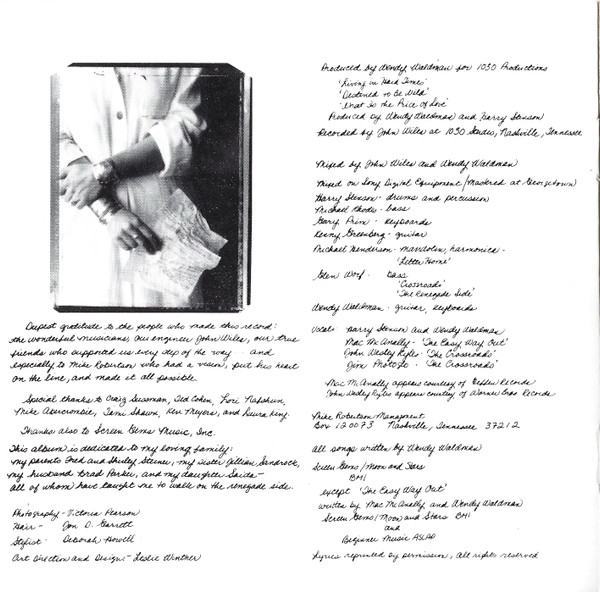 Deepest gratitude to the people who made this record:
the wonderful musicians, our engineer John Wiles, our true
friends who supported us every step of the way - and
especially to Mike Robertson who had a vision, put his heart
on the line, and made it all possible.
Special thanks to Craig Sussman, Ted Cohen, Lori Nafshun,
Mike Abercrombie, Tami Shawn, Ken Meyers, and Laura King.
Thanks also to Screen Gems Music, Inc.
This album is dedicated to my loving family:
my parents Fred and Shirley Steiner, my sister Jillian Sandrock,
my husband Brad Parker, and my daughter Sarita -
all of whom have taught me to walk on the renegade side.
Photography - Victoria Pearson
Hair - Jon D. Garrett
Stylist - Deborah Howell
Art Direction and Design - Leslie Winther
Produced by Wendy Waldman for 1030 Productions
'Living in Hard Times'
'Destined to Be Wild'
'What Is the Price of Love'
Produced by Wendy Waldman and Harry Stinson
Recorded by John Wiles at 1030 Studio, Nashville, Tennessee
Mixed by John Wiles and Wendy Waldman
Mixed on Sony Digital Equipment / Mastered at Georgetown
Harry Stinson - drums and percussion
Michael Rhodes - bass
Gary Prim - keyboards
Kenny Greenberg - guitar
Michael Henderson - mandolin, harmonica -
'Letters Home'
Glen Worf - bass
'Crossroads'
'The Renegade Side'
Wendy Waldman - guitar, keyboards
Vocals - Harry Stinson and Wendy Waldman
Mac McAnally - 'The Easy Way Out'
John Wesley Ryles - 'The Crossroads'
Jim Photoglo - 'The Crossroads'
Mac McAnally appears courtesy of Geffen Records
John Wesley Ryles appears courtesy of Warner Bros Records
Mike Robertson Management
Box 120073 Nashville, Tennessee 37212
All songs written by Wendy Waldman
Screen Gems / Moon and Stars
BMI
except 'The Easy Way Out'
written by Mac McAnally and Wendy Waldman
Screen Gems / Moon and Stars BMI
and
Beginner Music ASCAP
Lyrics reprinted by permission, All rights reserved